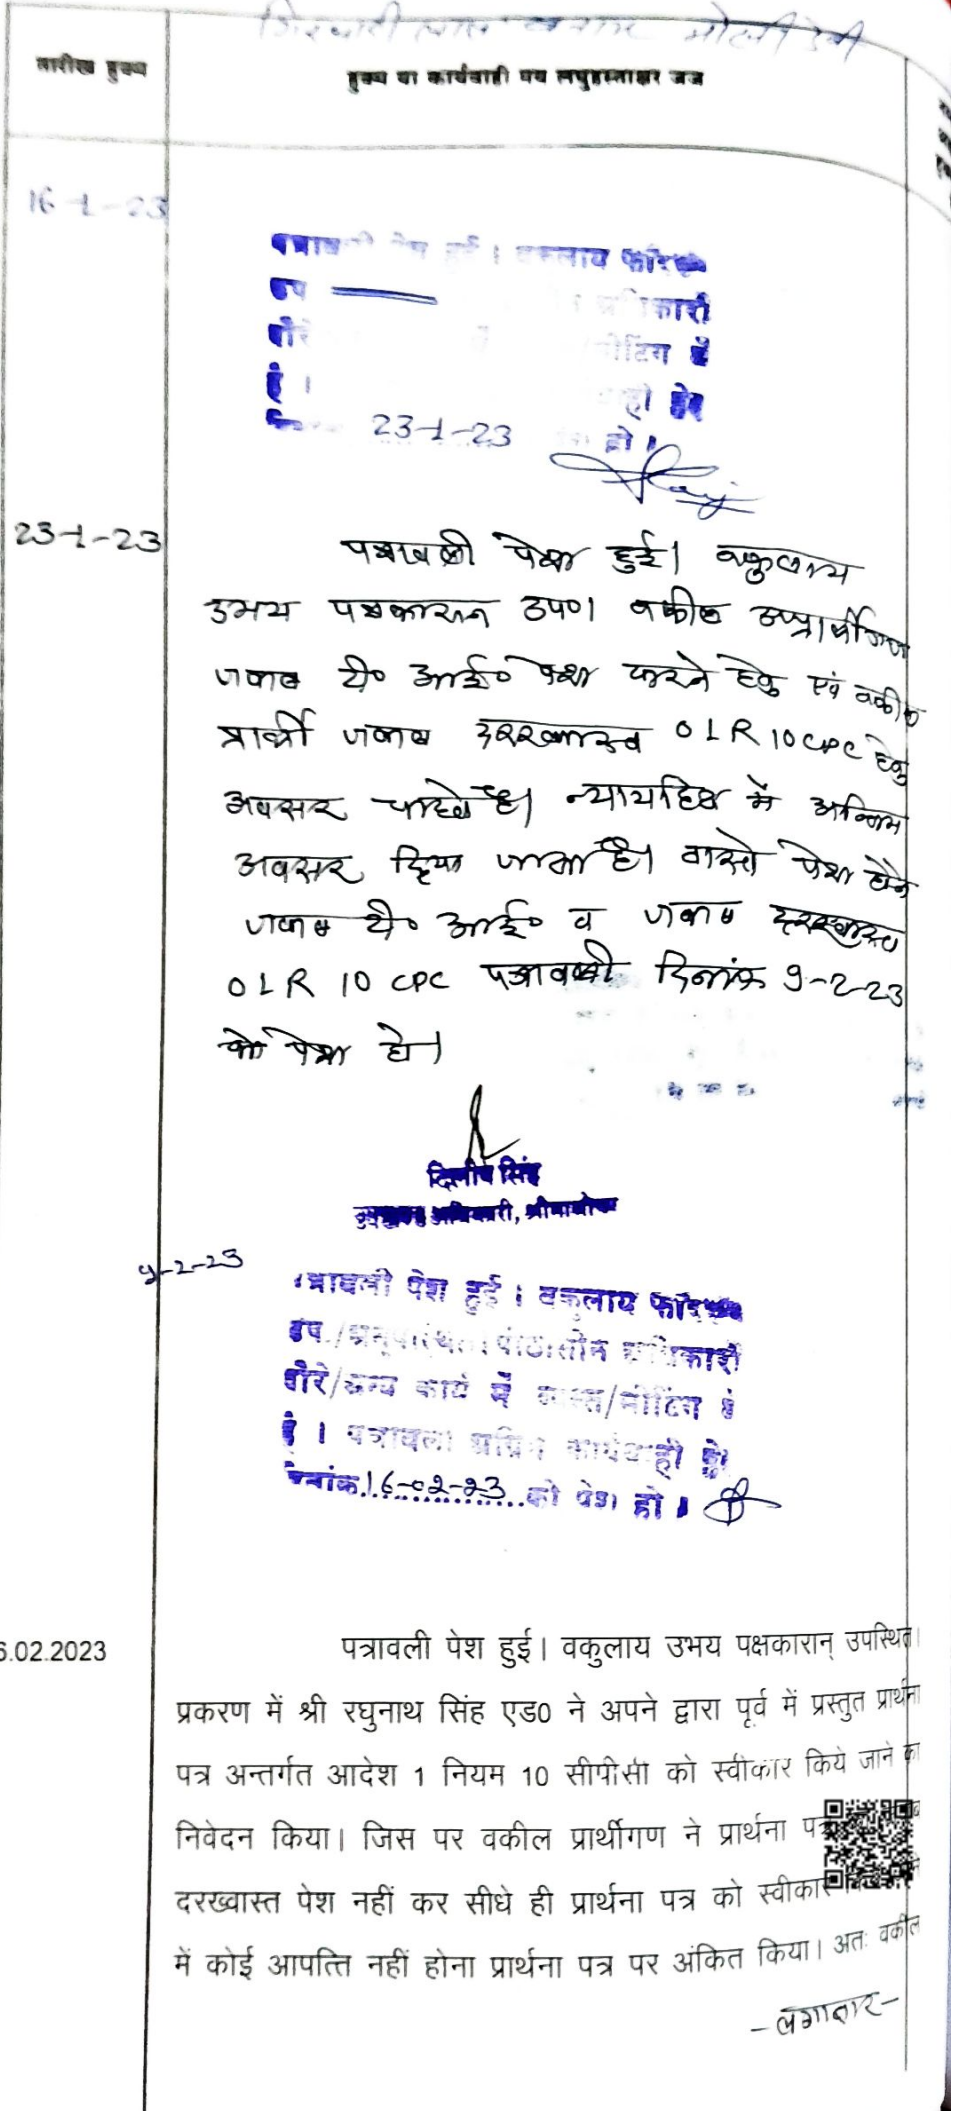 गिरधारी लाल बनाम मोली देवी
तारीख हुक्म
हुक्म या कार्यवाही मय लघुहस्ताक्षर जज
16-1-23
पेश हुई । वकलाय फरिकेन
उप
अधिकारी
दौरे मीटिंग में
है ।
23-1-23 हो ।
23-1-23
पत्रावली पेश हुई। वकुलाय
उभय पक्षकारान उप०। वकील अप्रार्थीगण
जवाब टी० आई० पेश करने हेतु एवं वकील
प्रार्थी जवाब दरख्वास्त O 1 R 10 CPC हेतु
अवसर चाहते है। न्यायहित में अन्तिम
अवसर दिया जाता है। वास्ते पेश होने
जवाब टी० आई० व जवाब दरख्वास्त
O 1 R 10 CPC पत्रावली दिनांक 9-2-23
को पेश हो।
दिलीप सिंह
उपखण्ड अधिकारी, श्रीमाधोपुर
9-2-23
पत्रावली पेश हुई । वकुलाय फरिकेन
उप./अनुपस्थित। पीठासीन अधिकारी
दौरे/अन्य कार्य में व्यस्त/मीटिंग में
है । पत्रावली अग्रिम कार्यवाही हेतु
दिनांक 16-02-23 को पेश हो ।
6.02.2023
पत्रावली पेश हुई। वकुलाय उभय पक्षकारान् उपस्थित।
प्रकरण में श्री रघुनाथ सिंह एड0 ने अपने द्वारा पूर्व में प्रस्तुत प्रार्थना
पत्र अन्तर्गत आदेश 1 नियम 10 सीपीसी को स्वीकार किये जाने का
निवेदन किया। जिस पर वकील प्रार्थीगण ने प्रार्थना पत्र
दरख्वास्त पेश नहीं कर सीधे ही प्रार्थना पत्र को स्वीकार
में कोई आपत्ति नहीं होना प्रार्थना पत्र पर अंकित किया। अतः वकील
-लगातार-